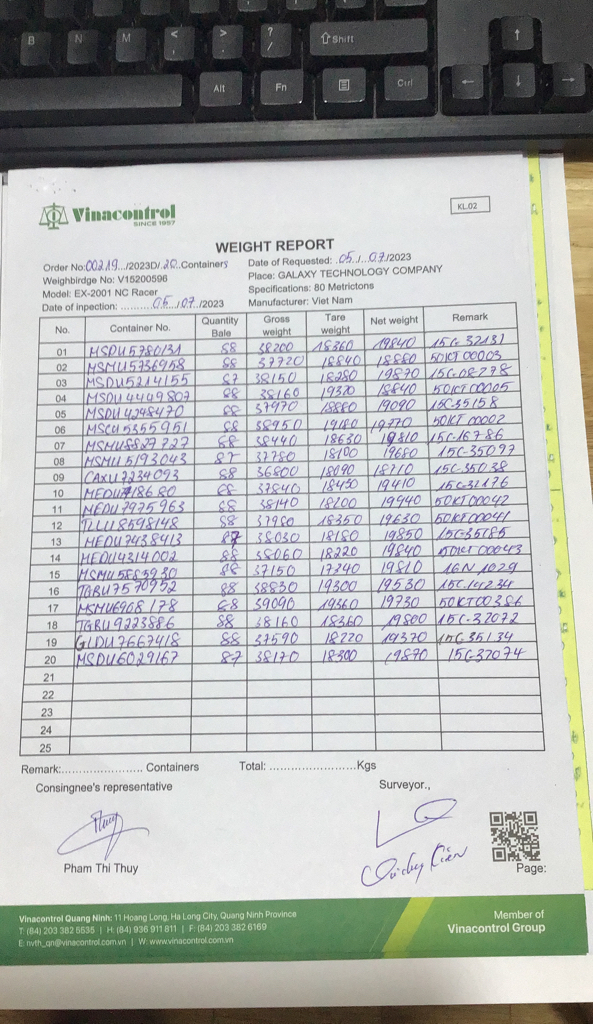 B N M < , > . ? / ⇧Shift ↑
Alt Fn Ctrl ← ↓ →
Vinacontrol
SINCE 1957
KL.02
WEIGHT REPORT
Order No:00219../2023D/.20..Containers
Date of Requested: .05./...07./2023
Weighbirdge No: V15200596
Place: GALAXY TECHNOLOGY COMPANY
Model: EX-2001 NC Racer
Specifications: 80 Metrictons
Date of inpection: ..........05../07../2023
Manufacturer: Viet Nam
No. Container No. Quantity Bale Gross weight Tare weight Net weight Remark
01 MSDU5780131 88 38200 18360 19840 15C-32131
02 MSMU5736958 88 37720 18840 18880 50KT 00003
03 MSDU5214155 87 38150 18280 19870 15C-08278
04 MSDU4449807 88 38160 19320 18840 50KT00005
05 MSDU4248470 88 37970 18880 19090 15C35158
06 MSCU5355951 88 38950 19180 19770 50KT 00002
07 MSMU8829727 88 38440 18630 19810 15C-16786
08 MSMU5193043 87 37780 18100 19680 15C-35097
09 CAXU7234093 88 36800 18090 18710 15C-35038
10 88 37840 18430 19410 15C-32176
11 MEDU7975963 88 38140 18200 19940 50KT00042
12 TLLU8598148 88 37980 18350 19630 50KT00041
13 MEDU7438413 87 38030 18180 19850 15C-35185
14 MEDU4314002 88 38060 18220 19840 50KT 00043
15 MSMU5883930 88 37150 17340 19810 16N 1029
16 TGBU7570952 88 38830 19300 19530 15C-14234
17 MSMU6908178 88 39090 19360 19730 50KT00386
18 TGBU9223886 88 38160 18360 19800 15C-32072
19 GLDU7667418 88 37590 18220 19370 15C-35134
20 MSDU6029167 87 38170 18300 19870 15C-32074
21
22
23
24
25
Remark:.................. Containers Total: ......................Kgs
Consingnee's representative Surveyor.,
Thuy
Pham Thi Thuy
Page:
Vinacontrol Quang Ninh: 11 Hoang Long, Ha Long City, Quang Ninh Province
T: (84) 203 382 5635 | H: (84) 936 911 811 | F: (84) 203 382 6169
E: nvth_qn@vinacontrol.com.vn | W: www.vinacontrol.com.vn
Member of
Vinacontrol Group